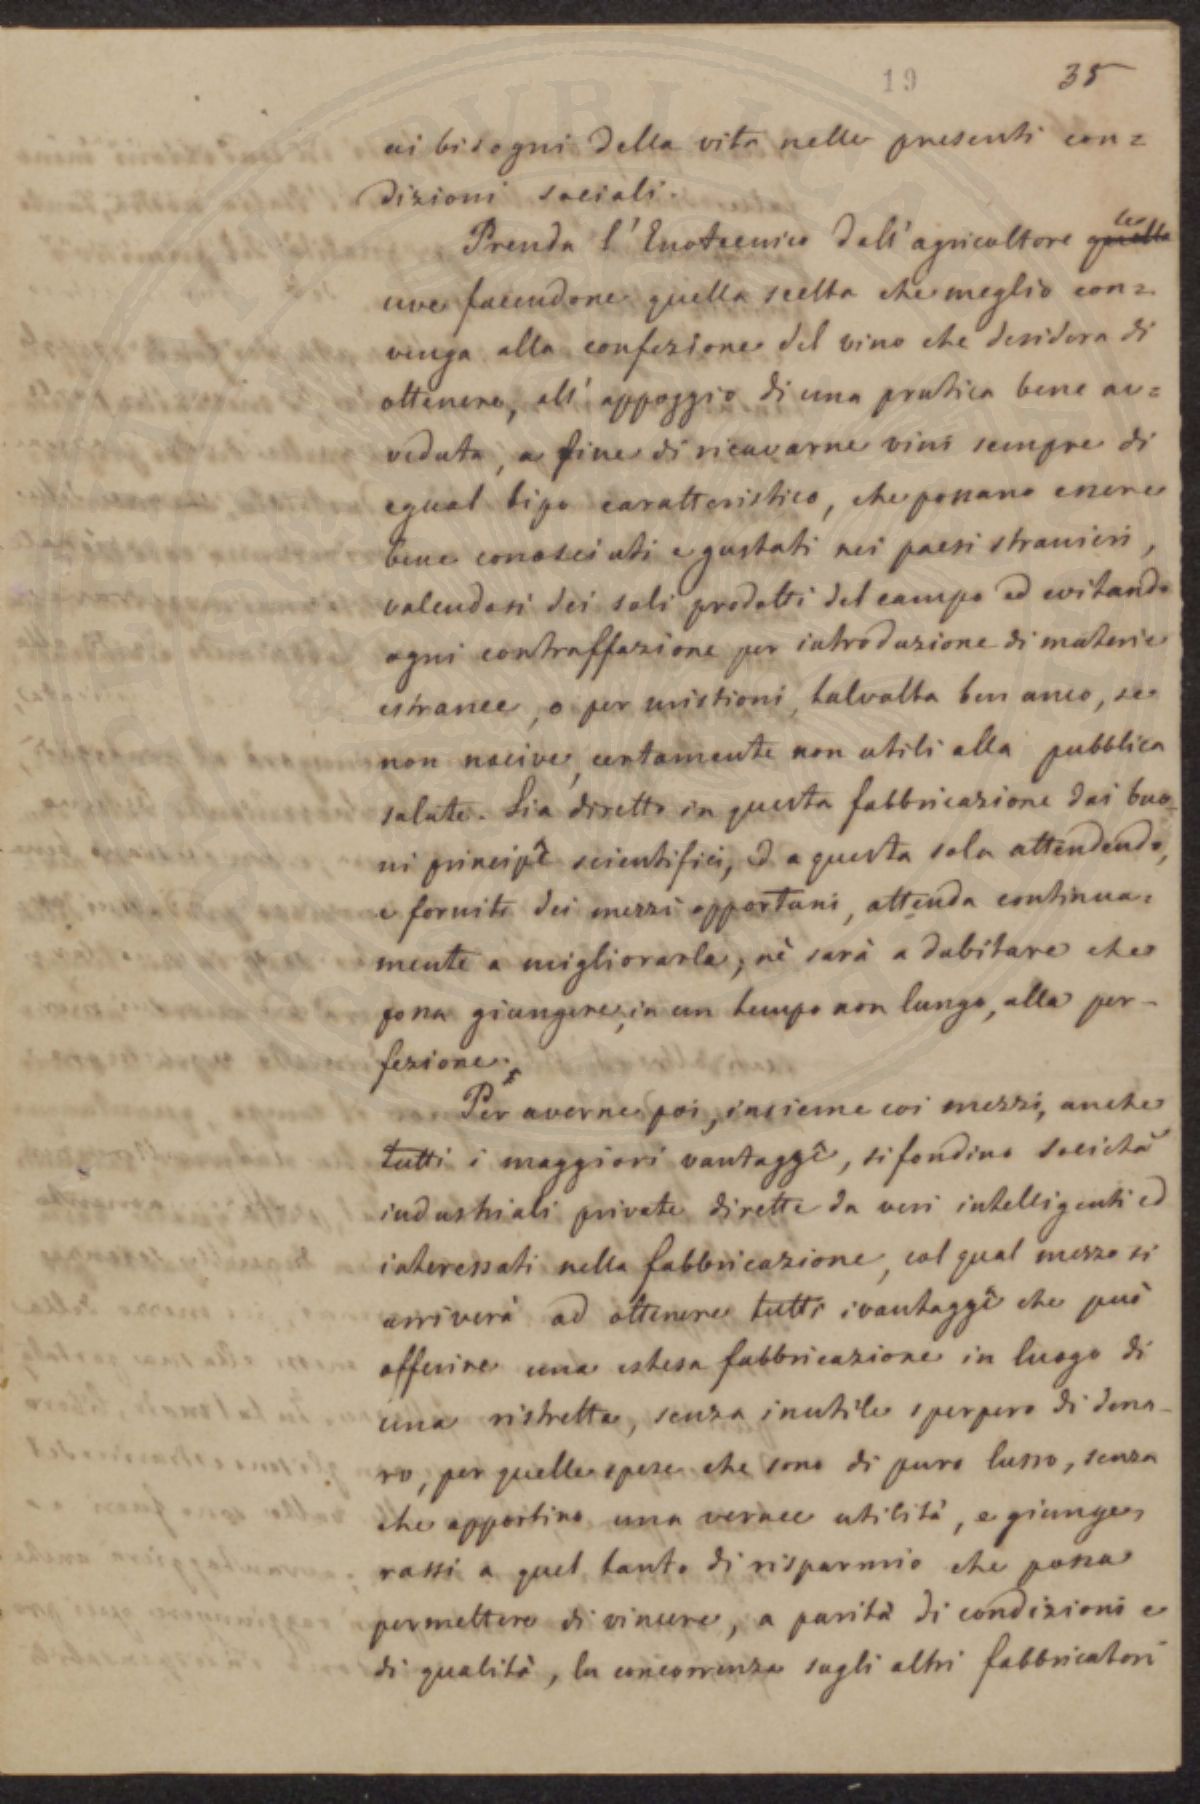 19 35
ai bisogni della vita nelle presenti con=
dizioni sociali.
Prenda l'Enotecnico dall'agricoltore quelle le
uve facendone quella scelta che meglio con=
venga alla confezione del vino che desidera di
ottenere, all'appoggio di una pratica bene av=
veduta, a fine di ricavarne vini sempre di
egual tipo caratteristico, che possano essere
bene conosciuti e gustati nei paesi stranieri,
valendosi dei soli prodotti del campo ed evitando
ogni contraffazione per introduzione di materie
estranee, o per mistioni, talvolta ben anco, se
non nocive, certamente non utili alla pubblica
salute. Sia diretto in questa fabbricazione dai buo-
ni principî scientifici, ed a questa sola attendendo,
e fornito dei mezzi opportuni, attenda continua=
mente a migliorarla, nè sarà a dubitare che
possa giungere, in un tempo non lungo, alla per-
fezione.
Per averne poi, insieme coi mezzi, anche
tutti i maggiori vantaggî, si fondino società
industriali private dirette da veri intelligenti ed
interessati nella fabbricazione, col qual mezzo si
arriverà ad ottenere tutti i vantaggî che può
offerire una estesa fabbricazione in luogo di
una ristretta, senza inutile sperpero di dena-
ro, per quelle spese che sono di puro lusso, senza
che apportino una verace utilità, e giunge=
rassi a quel tanto di risparmio che possa
permettere di vincere, a parità di condizioni e
di qualità, la concorrenza sugli altri fabbricatori